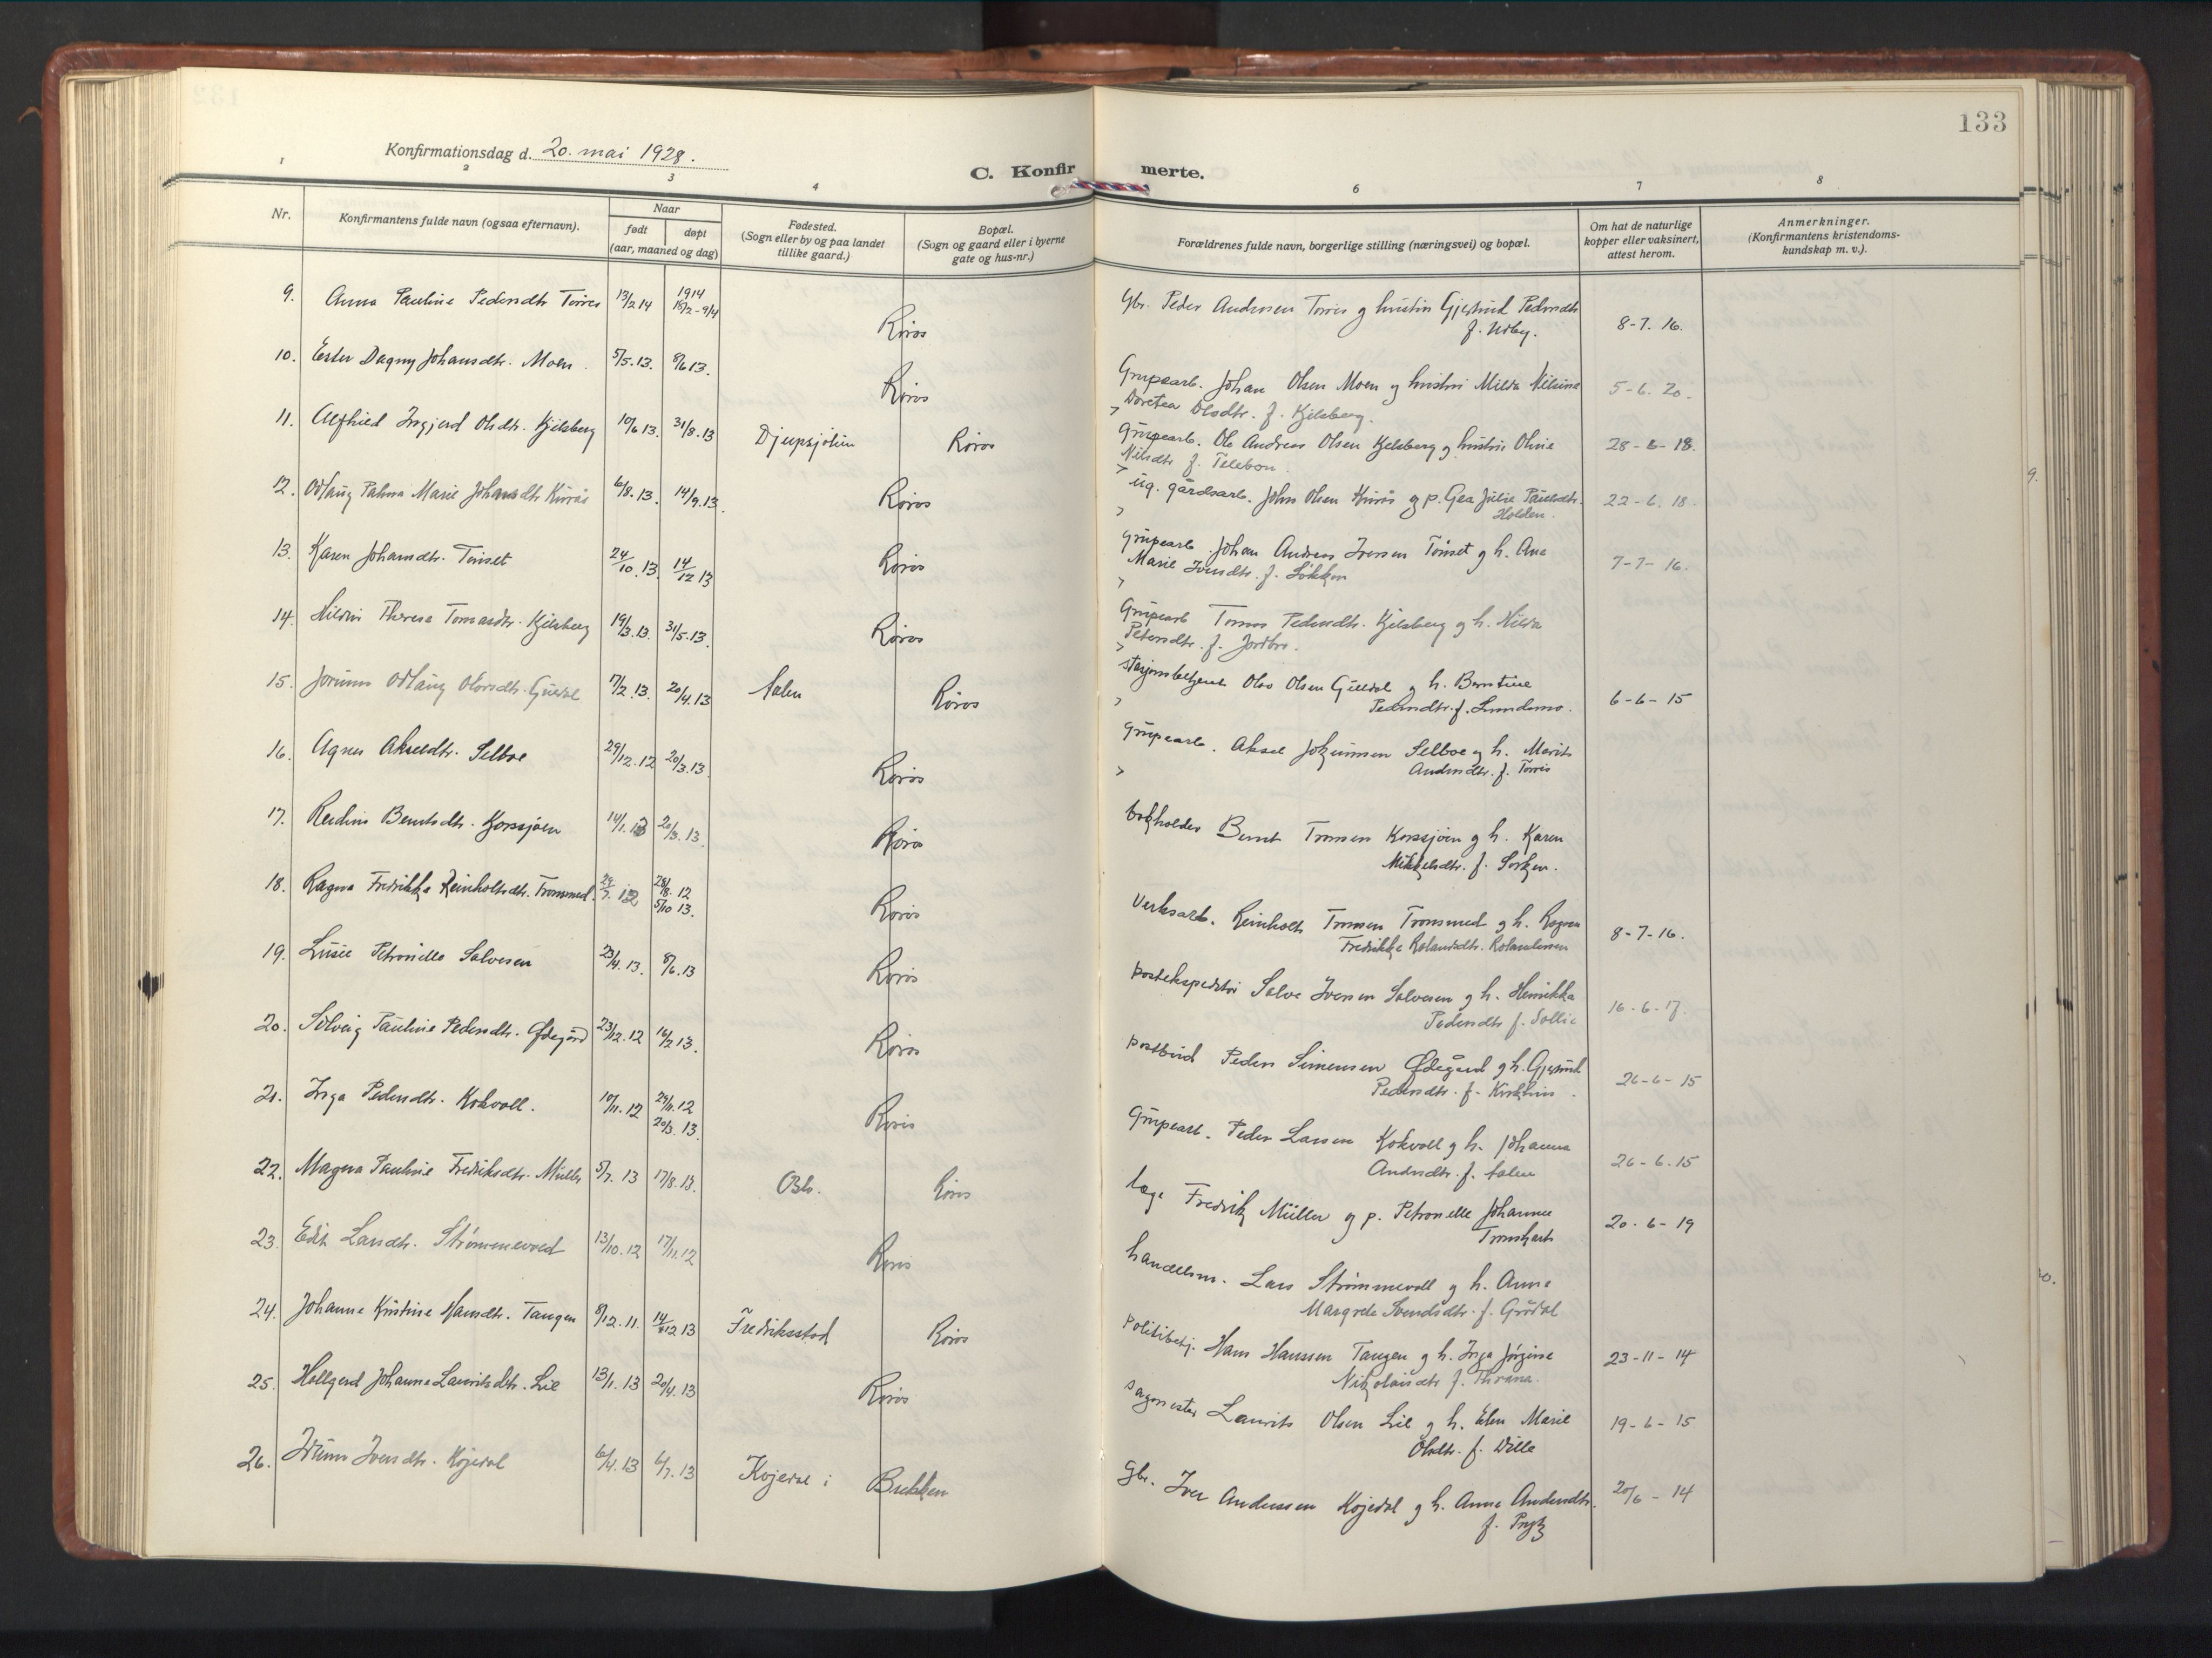 133
Konfirmationsdag d. 20. mai 1928.
C. Konfirmerte.
1 2 3 4 6 7 8
Nr.
Konfirmantens fulde navn (ogsaa efternavn).
Naar
født
døpt
(aar, maaned og dag)
Fødested.
(Sogn eller by og paa landet
tillike gaard.)
Bopæl.
(Sogn og gaard eller i byerne
gate og hus-nr.)
Forældrenes fulde navn, borgerlige stilling (næringsvei) og bopæl.
Om hat de naturlige
kopper eller vaksinert,
attest herom.
Anmerkninger.
(Konfirmantens kristendoms-
kundskap m. v.).
9. Anna Pauline Pedersdtr Torres 13/2 14 1914 15/2-9/4 Røros Gbr. Peder Andersen Torres g hustru Gjertrud Pedersdtr
f. Udby. 8-7. 16.
10. Ester Dagny Johansdtr. Moen. 5/5. 13. 8/6 13. Røros Grupearb. Johan Olsen Moen g hustru Milda Nilsine
Doretea Olsdtr. f. Kjelsberg. 5-6. 20.
11. Alfhild Ingjerd Olsdtr. Kjelsberg 10/6 13. 31/8. 13 Djupsjølien Røros Grupearb. Ole Andreas Olsen Kjelsberg g hustru Oline
Nilsdtr f. Telebon. 28-6-18.
12. Odlaug Palma Marie Johansdtr Kurås 6/8. 13. 14/9. 13. Røros ug. gårdsarb. John Olsen Kurås og p. Gea Julie Paulsdtr.
Holden. 22-6. 18.
13. Karen Johansdtr. Tinset 24/10. 13. 14/12 13 Røros Grupearb. Johan Andreas Iversen Tønset g h. Ane
Marie Iversdtr. f. Løkken 7-7-16.
14. Theresa Tomasdtr. Kjelsberg 19/3. 13. 31/5. 13. Røros Grupearb Tomas Pedersdtr. Kjelsberg og h. Hilda
Petersdtr. f. Jordbro.
15. Jorunn Odlaug Olavsdtr. Guldal 17/2. 13. 20/4. 13 Ålen Røros stasjonsbetjent Olav Olsen Guldal g h. Berntine
Pedersdtr. f. Lundemo. 6-6-15
16. Agnes Akseldtr. Selboe 29/12. 12 20/3. 13. Røros Grupearb. Aksel Johannsen Selboe g h. Marit
Andersdtr. f. Torres
17. Reidun Berntsdtr. Korssjøen 14/1. 13 20/3. 13. Røros bokholder Bernt Tronsen Korssjøen g h. Karen
Mikkelsdtr. f. Sorken.
18. Ragna Fredrikke Reinholtsdtr. Tronsmed. 29/7. 12 28/8. 12 5/10 13. Røros Verksarb. Reinholt Tronsen Tronsmed g h. Ragna
Fredrikke Rolandsdtr. Rolandsen 8-7-16.
19. Lusie Petronelle Salvesen 23/4. 13. 8/6. 13 Røros postekspeditør Salve Iversen Salvesen g h. Henrikka
Pedersdtr f. Sollie 16-6-17.
20. Solveig Pauline Pedersdtr. Ødegård 23/12. 12 16/2 13. Røros postbud Peder Simensen Ødegård g h. Gjertrud
Pedersdtr. f. 26-6-15
21. Inga Pedersdtr. Kokvoll. 10/11. 12 24/11. 12 20/3. 13. Røros Grupearb. Peder Larsen Kokvoll g h. Johanna
Andersdtr. f. Ålen 26-6. 15
22. Magna Pauline Fredriksdtr. Müller 5/7. 13 17/8. 13. Oslo. Røros læge Fredrik Müller og p. Petronelle Johanne
Tronshart 20. 6-19
23. Edit Larsdtr. Strømmevold 13/10. 12 17/11. 12 Røros handelsm. Lars Strømmevoll g h. Anna
Margrete Svendsdtr. f. Grådal
24. Johanne Kristine Hansdtr. Tangen 8/12. 11. 14/12 13 Fredriksstad Røros politibetj. Hans Hanssen Tangen g h. Inga Jørgine
Nikolaisdtr f. Thrana. 23-11-14
25. Hallgerd Johanne Lauritsdtr. Lie 13/1. 13 20/4. 13 Røros sagmester Laurits Olsen Lie g h. Elen Marie
Olsdtr. f. Wille 19-6-15
26. Idunn Iversdtr. Kojedal 6/4. 13 6/7. 13 Kojedal i Brekken Gbr. Iver Anderssen Kojedal g h. Anne Andersdtr.
f. Prytz 20/6-14